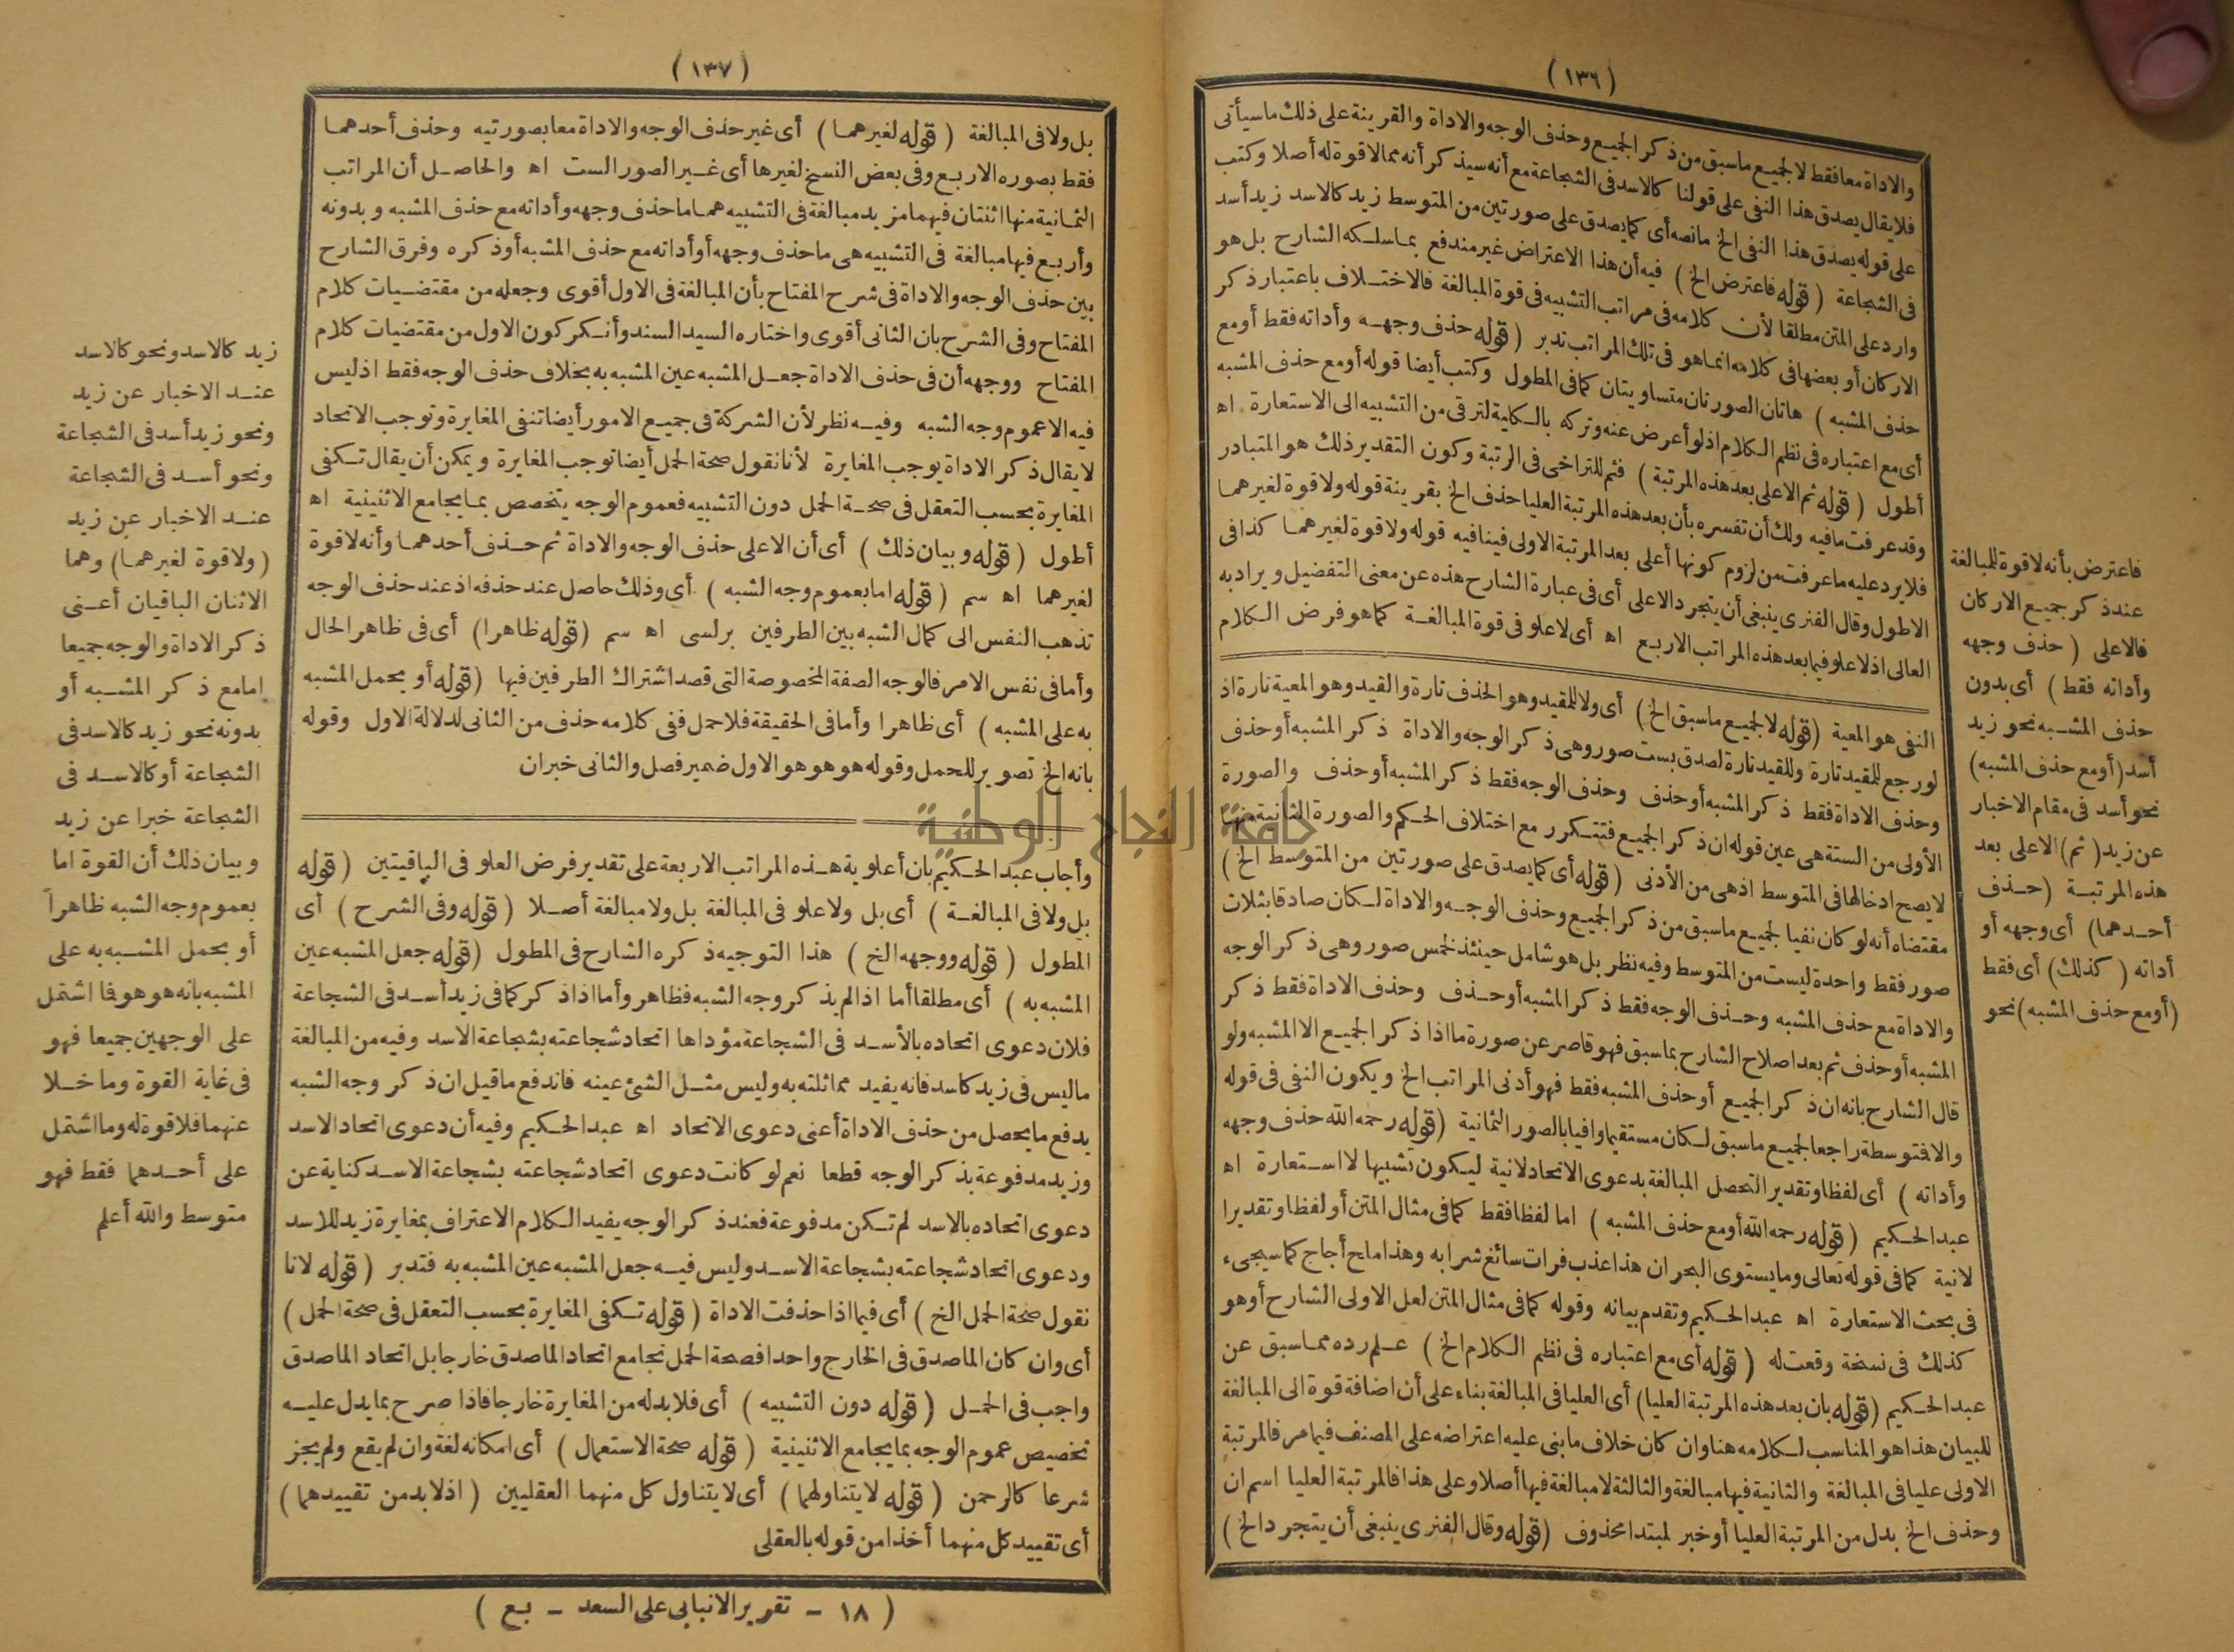 (١٣٦)
والاداة معا فقط لا لجميع ما سبق من ذكر الجميع وحذف الوجه والاداة والقرينة على ذلك ما سيأتى
فلا يقال يصدق هذا النفى على قولنا كالاسد فى الشجاعة مع أنه سيذكر أنه مما لا قوة له أصلا وكتب
على قوله يصدق هذا النفى الخ ما نصه أى كما يصدق على صورتين من المتوسط زيد كالاسد زيد أسد
فى الشجاعة (قوله فاعترض الخ) فيه أن هذا الاعتراض غير مندفع بما سلكه الشارح بل هو
وارد على المتن مطلقا لأن كلامه فى مراتب التشبيه فى قوة المبالغة فالاختلاف باعتبار ذكر
الاركان أو بعضها فى كلامه انما هو فى تلك المراتب تدبر (قوله حذف وجهه وأداته فقط أو مع
حذف المشبه) هاتان الصورتان متساويتان كما فى المطول وكتب أيضا قوله أو مع حذف المشبه
أى مع اعتباره فى نظم الكلام اذ لو أعرض عنه وتركه بالكلية لترقى من التشبيه الى الاستعارة اه
أطول (قوله ثم الاعلى بعد هذه المرتبة) فثم للتراخى فى الرتبة وكون التقدير ذلك هو المتبادر
وقد عرفت ما فيه ولك أن تفسره بأن بعد هذه المرتبة العليا حذف الخ بقرينة قوله ولا قوة لغيرهما
فلا يرد عليه ما عرفت من لزوم كونها أعلى بعد المرتبة الاولى فينافيه قوله ولا قوة لغيرهما كذا فى
الاطول وقال الفنرى ينبغى أن يتجرد الاعلى أى فى عبارة الشارح هذه عن معنى التفضيل ويراد به
العالى اذ لا علو فيما بعد هذه المراتب الاربع اه أى لا علو فى قوة المبالغة كما هو فرض الكلام
النفى هو المعية (قوله لا لجميع ما سبق الخ) أى ولا للمقيد وهو الحذف تارة والقيد وهو المعية تارة اذ
لو رجع للمقيد تارة وللقيد تارة لصدق بست صور وهى ذكر الوجه والاداة ذكر المشبه أو حذف
وحذف الاداة فقط ذكر المشبه أو حذف وحذف الوجه فقط ذكر المشبه أو حذف والصورة
الأولى من الستة هى عين قوله ان ذكر الجميع فتتكرر مع اختلاف الحكم والصورة الثانية منها
لا يصح ادخالها فى المتوسط اذ هى من الأدنى (قوله أى كما يصدق على صورتين من المتوسط الخ)
مقتضاه أنه لو كان نفيا لجميع ما سبق من ذكر الجميع وحذف الوجه والاداة لكان صادقا بثلاث
صور فقط واحدة ليست من المتوسط وفيه نظر بل هو شامل حينئذ لخمس صور وهى ذكر الوجه
والاداة مع حذف المشبه وحذف الوجه فقط ذكر المشبه أو حذف وحذف الاداة فقط ذكر
المشبه أو حذف ثم بعد اصلاح الشارح بما سبق فهو قاصر عن صورة ما اذا ذكر الجميع الا المشبه ولو
قال الشارح بانه ان ذكر الجميع أو حذف المشبه فقط فهو أدنى المراتب الخ ويكون النفى فى قوله
والا فتوسطة راجعا لجميع ما سبق لكان مستقيما وافيا بالصور الثمانية (قوله رحمه الله حذف وجهه
وأداته) أى لفظا وتقدير التحصل المبالغة بدعوى الاتحاد لا نية ليكون تشبيها لا استعارة اه
عبد الحكيم (قوله رحمه الله أو مع حذف المشبه) اما لفظا فقط كما فى مثال المتن أو لفظا وتقديرا
لا نية كما فى قوله تعالى وما يستوى البحران هذا عذب فرات سائغ شرابه وهذا ملح أجاج كما سيجىء
فى بحث الاستعارة اه عبد الحكيم وتقدم بيانه وقوله كما فى مثال المتن لعل الاولى الشارح أو هو
كذلك فى نسخة وقعت له (قوله أى مع اعتباره فى نظم الكلام الخ) علم رده مما سبق عن
عبد الحكيم (قوله بان بعد هذه المرتبة العليا) أى العليا فى المبالغة بناء على أن اضافة قوة الى المبالغة
للبيان هذا هو المناسب لكلامه هنا وان كان خلاف ما بنى عليه اعتراضه على المصنف فيما مر فالمرتبة
الاولى عليا فى المبالغة والثانية فيها مبالغة والثالثة لا مبالغة فيها أصلا وعلى هذا فالمرتبة العليا اسم ان
وحذف الخ بدل من المرتبة العليا أو خبر لمبتدا محذوف (قوله وقال الفنرى ينبغى أن يتجرد الخ)
فاعترض بأنه لا قوة للمبالغة
عند ذكر جميع الاركان
فالاعلى (حذف وجهه
وأداته فقط) أى بدون
حذف المشبه نحو زيد
أسد (أو مع حذف المشبه)
نحو أسد فى مقام الاخبار
عن زيد (ثم) الاعلى بعد
هذه المرتبة (حذف
أحدهما) أى وجهه أو
أداته (كذلك) أى فقط
(أو مع حذف المشبه) نحو
(١٣٧)
بل ولا فى المبالغة (قوله لغيرهما) أى غير حذف الوجه والاداة معا بصورتيه وحذف أحدهما
فقط بصوره الاربع وفى بعض النسخ لغيرها أى غير الصور الست اه والحاصل أن المراتب
الثمانية منها اثنتان فيهما مزيد مبالغة فى التشبيه هما ما حذف وجهه وأداته مع حذف المشبه وبدونه
وأربع فيها مبالغة فى التشبيه هى ما حذف وجهه أو أداته مع حذف المشبه أو ذكره وفرق الشارح
بين حذف الوجه والاداة فى شرح المفتاح بأن المبالغة فى الاول أقوى وجعله من مقتضيات كلام
المفتاح وفى الشرح بان الثانى أقوى واختاره السيد السند وأنكر كون الاول من مقتضيات كلام
المفتاح ووجهه أن فى حذف الاداة جعل المشبه عين المشبه به بخلاف حذف الوجه فقط اذ ليس
فيه الا عموم وجه الشبه وفيه نظر لأن الشركة فى جميع الامور أيضا تنفى المغايرة وتوجب الاتحاد
لا يقال ذكر الاداة يوجب المغايرة لأنا نقول صحة الحمل أيضا توجب المغايرة ويمكن أن يقال تكفى
المغايرة بحسب التعقل فى صحة الحمل دون التشبيه فعموم الوجه يتخصص بما يجامع الاثنينية اه
أطول (قوله وبيان ذلك) أى أن الاعلى حذف الوجه والاداة ثم حذف أحدهما وأنه لا قوة
لغيرهما اه سم (قوله اما بعموم وجه الشبه) أى وذلك حاصل عند حذفه اذ عند حذف الوجه
تذهب النفس الى كمال الشبه بين الطرفين برلسى اه سم (قوله ظاهرا) أى فى ظاهر الحال
وأما فى نفس الامر فالوجه الصفة المخصوصة التى قصد اشتراك الطرفين فيها (قوله أو بحمل المشبه
به على المشبه) أى ظاهرا وأما فى الحقيقة فلا حمل ففى كلامه حذف من الثانى لدلالة الاول وقوله
بانه الخ تصوير للحمل وقوله هو هو هو الاول ضمير فصل والثانى خبر ان
جامعة النجاح الوطنية
وأجاب عبد الحكيم بان أعلوية هذه المراتب الاربعة على تقدير فرض العلو فى الباقيتين (قوله
بل ولا فى المبالغة) أى بل ولا علو فى المبالغة بل ولا مبالغة أصلا (قوله وفى الشرح) أى
المطول (قوله ووجهه الخ) هذا التوجيه ذكره الشارح فى المطول (قوله جعل المشبه عين
المشبه به) أى مطلقا أما اذا لم يذكر وجه الشبه فظاهر وأما اذا ذكر كما فى زيد أسد فى الشجاعة
فلان دعوى اتحاده بالأسد فى الشجاعة مؤداها اتحاد شجاعته بشجاعة الاسد وفيه من المبالغة
ما ليس فى زيد كاسد فانه يفيد مماثلته به وليس مثل الشئ عينه فاندفع ما قيل ان ذكر وجه الشبه
يدفع ما يحصل من حذف الاداة أعنى دعوى الاتحاد اه عبد الحكيم وفيه أن دعوى اتحاد الاسد
وزيد مدفوعة بذكر الوجه قطعا نعم لو كانت دعوى اتحاد شجاعته بشجاعة الاسد كناية عن
دعوى اتحاده بالاسد لم تكن مدفوعة فعند ذكر الوجه يفيد الكلام الاعتراف بمغايرة زيد للاسد
ودعوى اتحاد شجاعته بشجاعة الاسد وليس فيه جعل المشبه عين المشبه به فتدبر (قوله لانا
نقول صحة الحمل الخ) أى فيما اذا حذفت الاداة (قوله تكفى المغايرة بحسب التعقل فى صحة الحمل)
أى وان كان الماصدق فى الخارج واحدا فصحة الحمل تجامع اتحاد الماصدق خارجا بل اتحاد الماصدق
واجب فى الحمل (قوله دون التشبيه) أى فلا بد له من المغايرة خارجا فاذا صرح بما يدل عليه
تخصيص عموم الوجه بما يجامع الاثنينية (قوله صحة الاستعمال) أى امكانه لغة وان لم يقع ولم يجز
شرعا كالرحمن (قوله لا يتناولهما) أى لا يتناول كل منهما العقليين (اذ لا بد من تقييدهما)
أى تقييد كل منهما أخذا من قوله بالعقلى
زيد كالاسد ونحو كالاسد
عند الاخبار عن زيد
ونحو زيد أسد فى الشجاعة
ونحو أسد فى الشجاعة
عند الاخبار عن زيد
(ولا قوة لغيرهما) وهما
الاثنان الباقيان أعنى
ذكر الاداة والوجه جميعا
اما مع ذكر المشبه أو
بدونه نحو زيد كالاسد فى
الشجاعة أو كالاسد فى
الشجاعة خبرا عن زيد
وبيان ذلك أن القوة اما
بعموم وجه الشبه ظاهراً
أو بحمل المشبه به على
المشبه بأنه هو هو فما اشتمل
على الوجهين جميعا فهو
فى غاية القوة وما خلا
عنهما فلا قوة له وما اشتمل
على أحدهما فقط فهو
متوسط والله أعلم
(١٨ - تقرير الانبابى على السعد - بع)